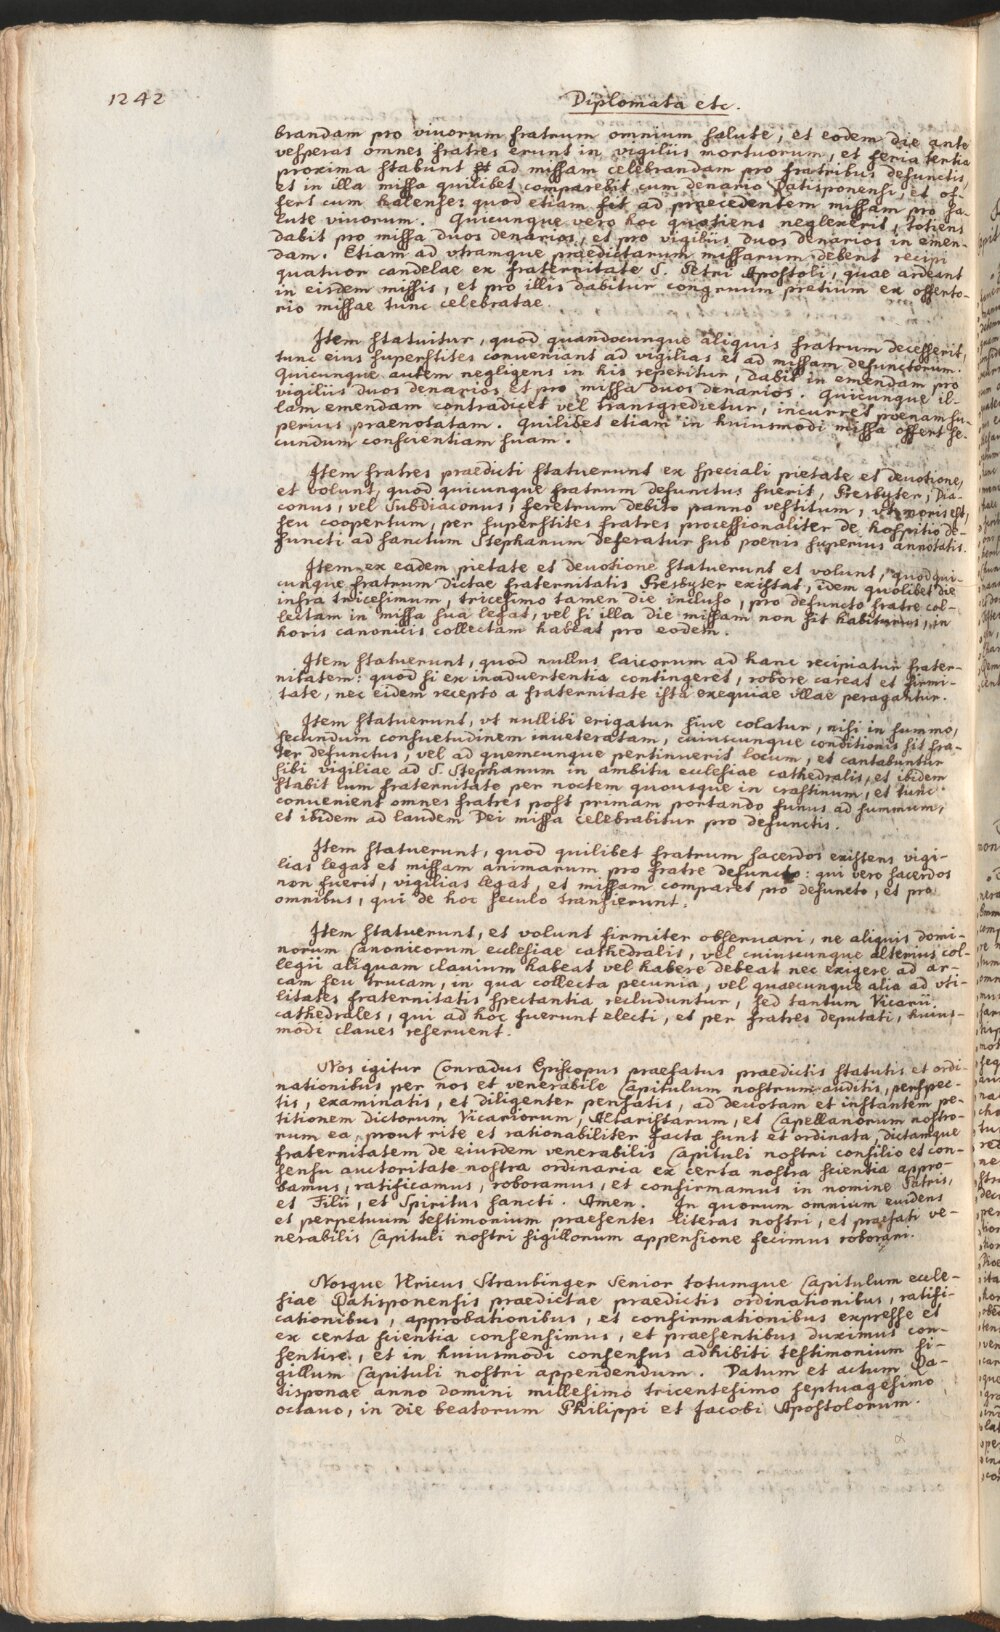 1242
Diplomata etc.
brandam pro vivorum fratrum omnium salute, et eodem die ante
vesperas omnes fratres erunt in vigiliis mortuorum, et feria tertia
proxima stabunt ad missam celebrandam pro fratribus defunctis,
et in illa missa quilibet comparebit cum denario Ratisponensi, et of-
fert cum halense: quod etiam fit ad praecedentem missam pro sa-
lute vivorum. Quicunque vero hoc quotiens neglexerit, totiens
dabit pro missa duos denarios, et pro vigiliis duos denarios in emen-
dam. Etiam ad vtramque praedictarum missarum debent recipi
quatuor candelae ex fraternitate S. Petri Apostoli, quae ardeant
in eisdem missis, et pro illis dabitur congruum pretium ex offerto-
rio missae tunc celebratae.
Item statuitur, quod quandocunque aliquis fratrum decesserit,
tunc eius superstites conveniant ad vigilias et ad missam defunctorum.
Quicunque autem negligens in his reperitur, dabit in emendam pro
vigiliis duos denarios et pro missa duos denarios. Quicunque il-
lam emendam contradicet vel transgredietur, incurret poenam su-
perius praenotatam. Quilibet etiam in huiusmodi missa offert se-
cundum conscientiam suam.
Item fratres praedicti statuerunt ex speciali pietate et devotione,
et volunt, quod quicunque fratrum defunctus fuerit, Presbyter, Dia-
conus, vel Subdiaconus, feretrum debito panno vestitum, vt moris est,
seu coopertum, per superstites fratres processionaliter de hospitio de-
functi ad sanctum Stephanum deferatur sub poenis superius annotatis.
Item ex eadem pietate et devotione statuerunt et volunt, quod qui-
cunque fratrum dictae fraternitatis Presbyter existat, idem quolibet die
infra tricesimum, tricesimo tamen die incluso, pro defuncto fratre col-
lectam in missa sua legat, vel si illa die missam non sit habiturus, in
horis canonicis collectam habeat pro eodem.
Item statuerunt, quod nullus laicorum ad hanc recipiatur frater-
nitatem: quod si ex inadvertentia contingeret, robore careat et firmi-
tate, nec eidem recepto a fraternitate ista exequiae vllae peragantur.
Item statuerunt, vt nullibi erigatur sive colatur, nisi in summo,
secundum consuetudinem inveteratam, cuiuscunque conditionis sit fra-
ter defunctus, vel ad quemcunque pertinuerit locum, et cantabuntur
sibi vigiliae ad S. Stephanum in ambitu ecclesiae cathedralis, et ibidem
stabit cum fraternitate per noctem quousque in crastinum, et tunc
convenient omnes fratres post primam portando funus ad summum,
et ibidem ad laudem Dei missa celebrabitur pro defunctis.
Item statuerunt, quod quilibet fratrum sacerdos existens vigi-
lias legat et missam animarum pro fratre defuncto: qui vero sacerdos
non fuerit, vigilias legat, et missam comparet pro defuncto, et pro
omnibus, qui de hoc seculo transierunt.
Item statuerunt, et volunt firmiter observari, ne aliquis domi-
norum Canonicorum ecclesiae cathedralis, vel cuiuscunque alterius col-
legii aliquam clavium habeat vel habere debeat nec exigere ad ar-
cam seu trucam, in qua collecta pecunia, vel quaecunque alia ad vti-
litates fraternitatis spectantia recluduntur, sed tantum Vicarii
cathedrales, qui ad hoc fuerunt electi, et per fratres deputati, huius-
modi claves reservent.
Nos igitur Conradus Episcopus praefatus praedictis statutis et ordi-
nationibus per nos et venerabile Capitulum nostrum auditis, perspec-
tis, examinatis, et diligenter pensatis, ad devotam et instantem pe-
titionem dictorum Vicariorum, Altaristarum, et Capellanorum nostro-
rum ea, prout rite et rationabiliter facta sunt et ordinata, dictamque
fraternitatem de eiusdem venerabilis Capituli nostri consilio et con-
sensu auctoritate nostra ordinaria ex certa nostra scientia appro-
bamus, ratificamus, roboramus, et confirmamus in nomine Patris,
et Filii, et Spiritus sancti. Amen. In quorum omnium evidens
et perpetuum testimonium praesentes literas nostri, et praefati ve-
nerabilis Capituli nostri sigillorum appensione fecimus roborari.
Nosque Vlricus Straubinger Senior totumque Capitulum eccle-
siae Ratisponensis praedictae praedictis ordinationibus, ratifi-
cationibus, approbationibus, et confirmationibus expresse et
ex certa scientia consensimus, et praesentibus duximus con-
sentire, et in huiusmodi consensus adhibiti testimonium si-
gillum Capituli nostri appendendum. Datum et actum Ra-
tisponae anno domini millesimo tricentesimo septuagesimo
octavo, in die beatorum Philippi et Jacobi Apostolorum.